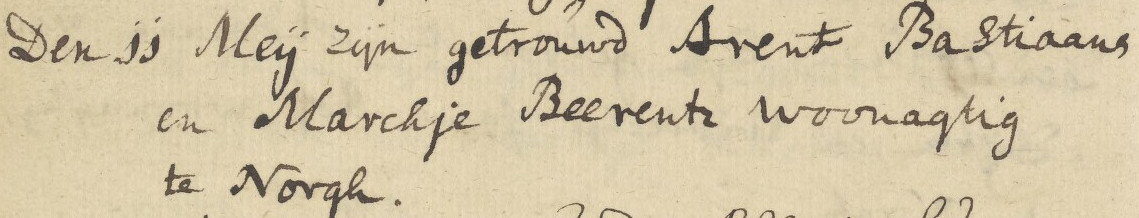 Den 11 Meÿ zijn getrouwd Arent Bastiaans
en Marchje Beerents woonagtig
te Norgh.